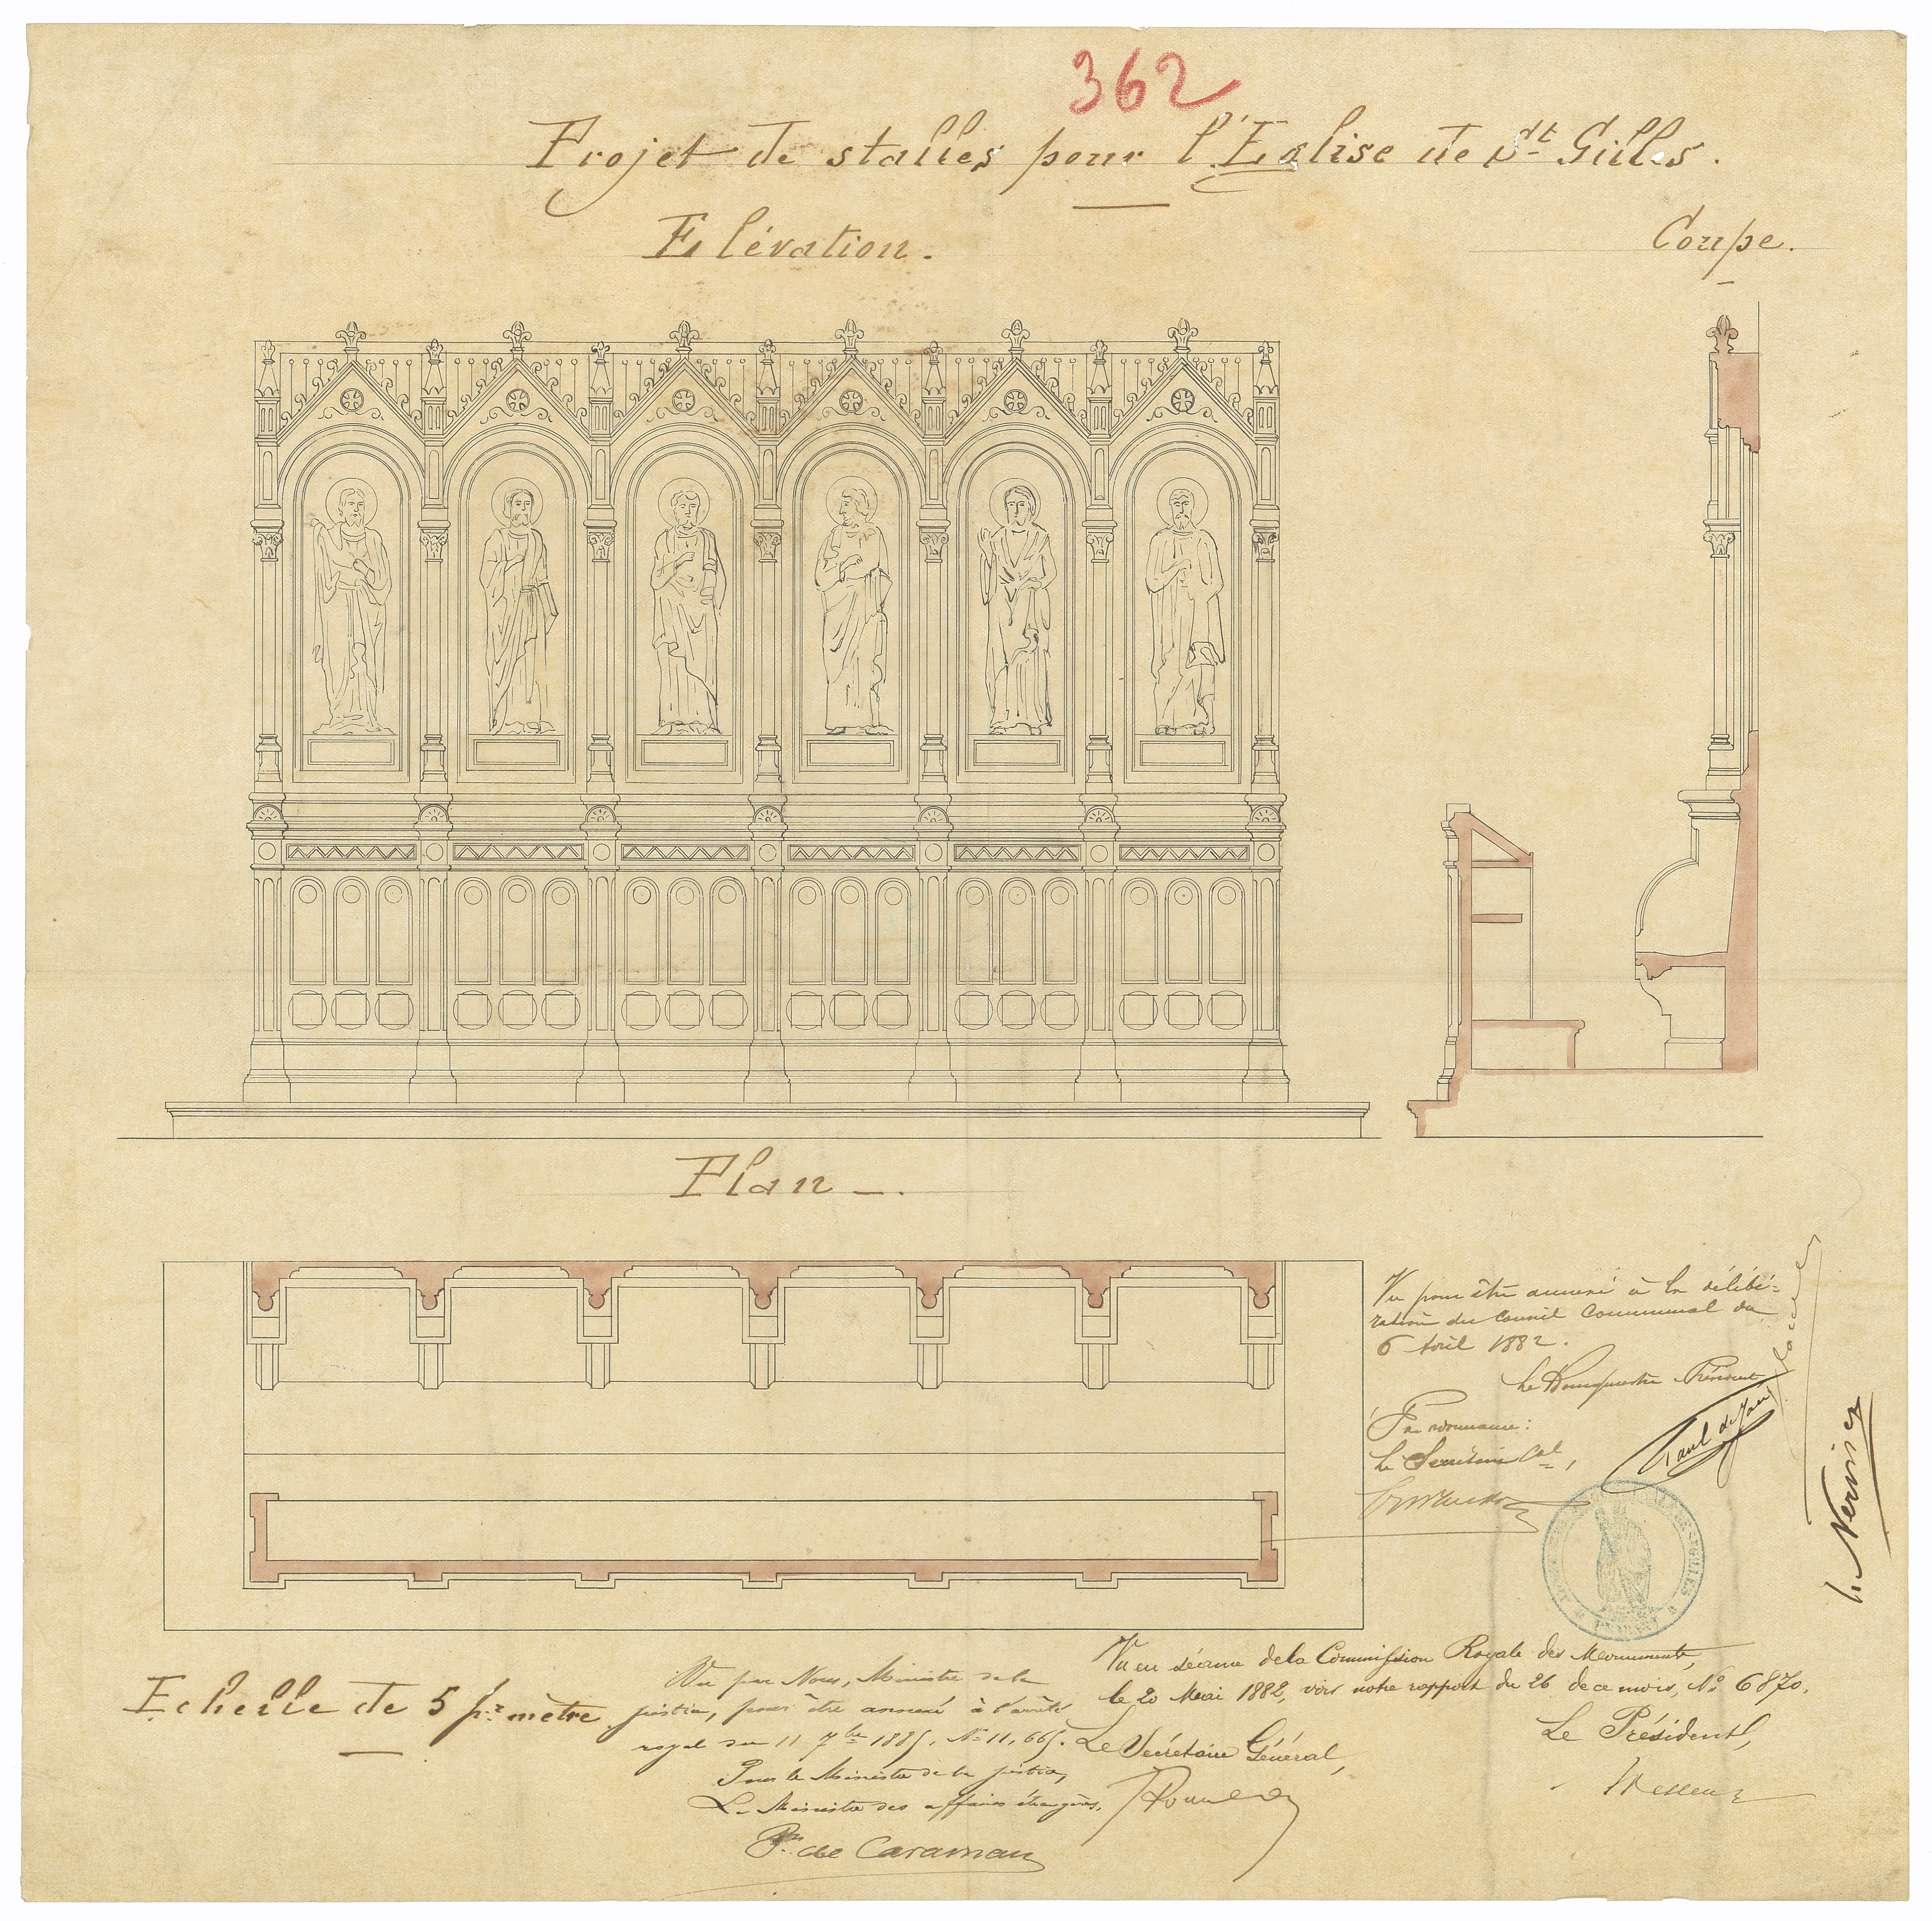 362
Projet de stalles pour l'Eglise de St Gilles.
Elévation.
Coupe.
Plan.
Vu pour être annexé à la délibé-
ration du Conseil Communal du
6 Avril 1882.
Le Bourgmestre Président
Par ordonnance:
Le Secrétaire Cal,
Echelle de 5 pr mètre
Vu par Nous, Ministre de la
justice, pour être annexé à l'arrêté
royal du 11 7bre 1885. No 11,665.
Pour le Ministre de la justice,
Le Ministre des affaires étrangères,
Pce de Caraman
Vu en séance de la Commission Royale des Monuments,
le 20 Mai 1882, voir notre rapport du 26 de ce mois, No 6870.
Le Secrétaire Général,
Le Président,